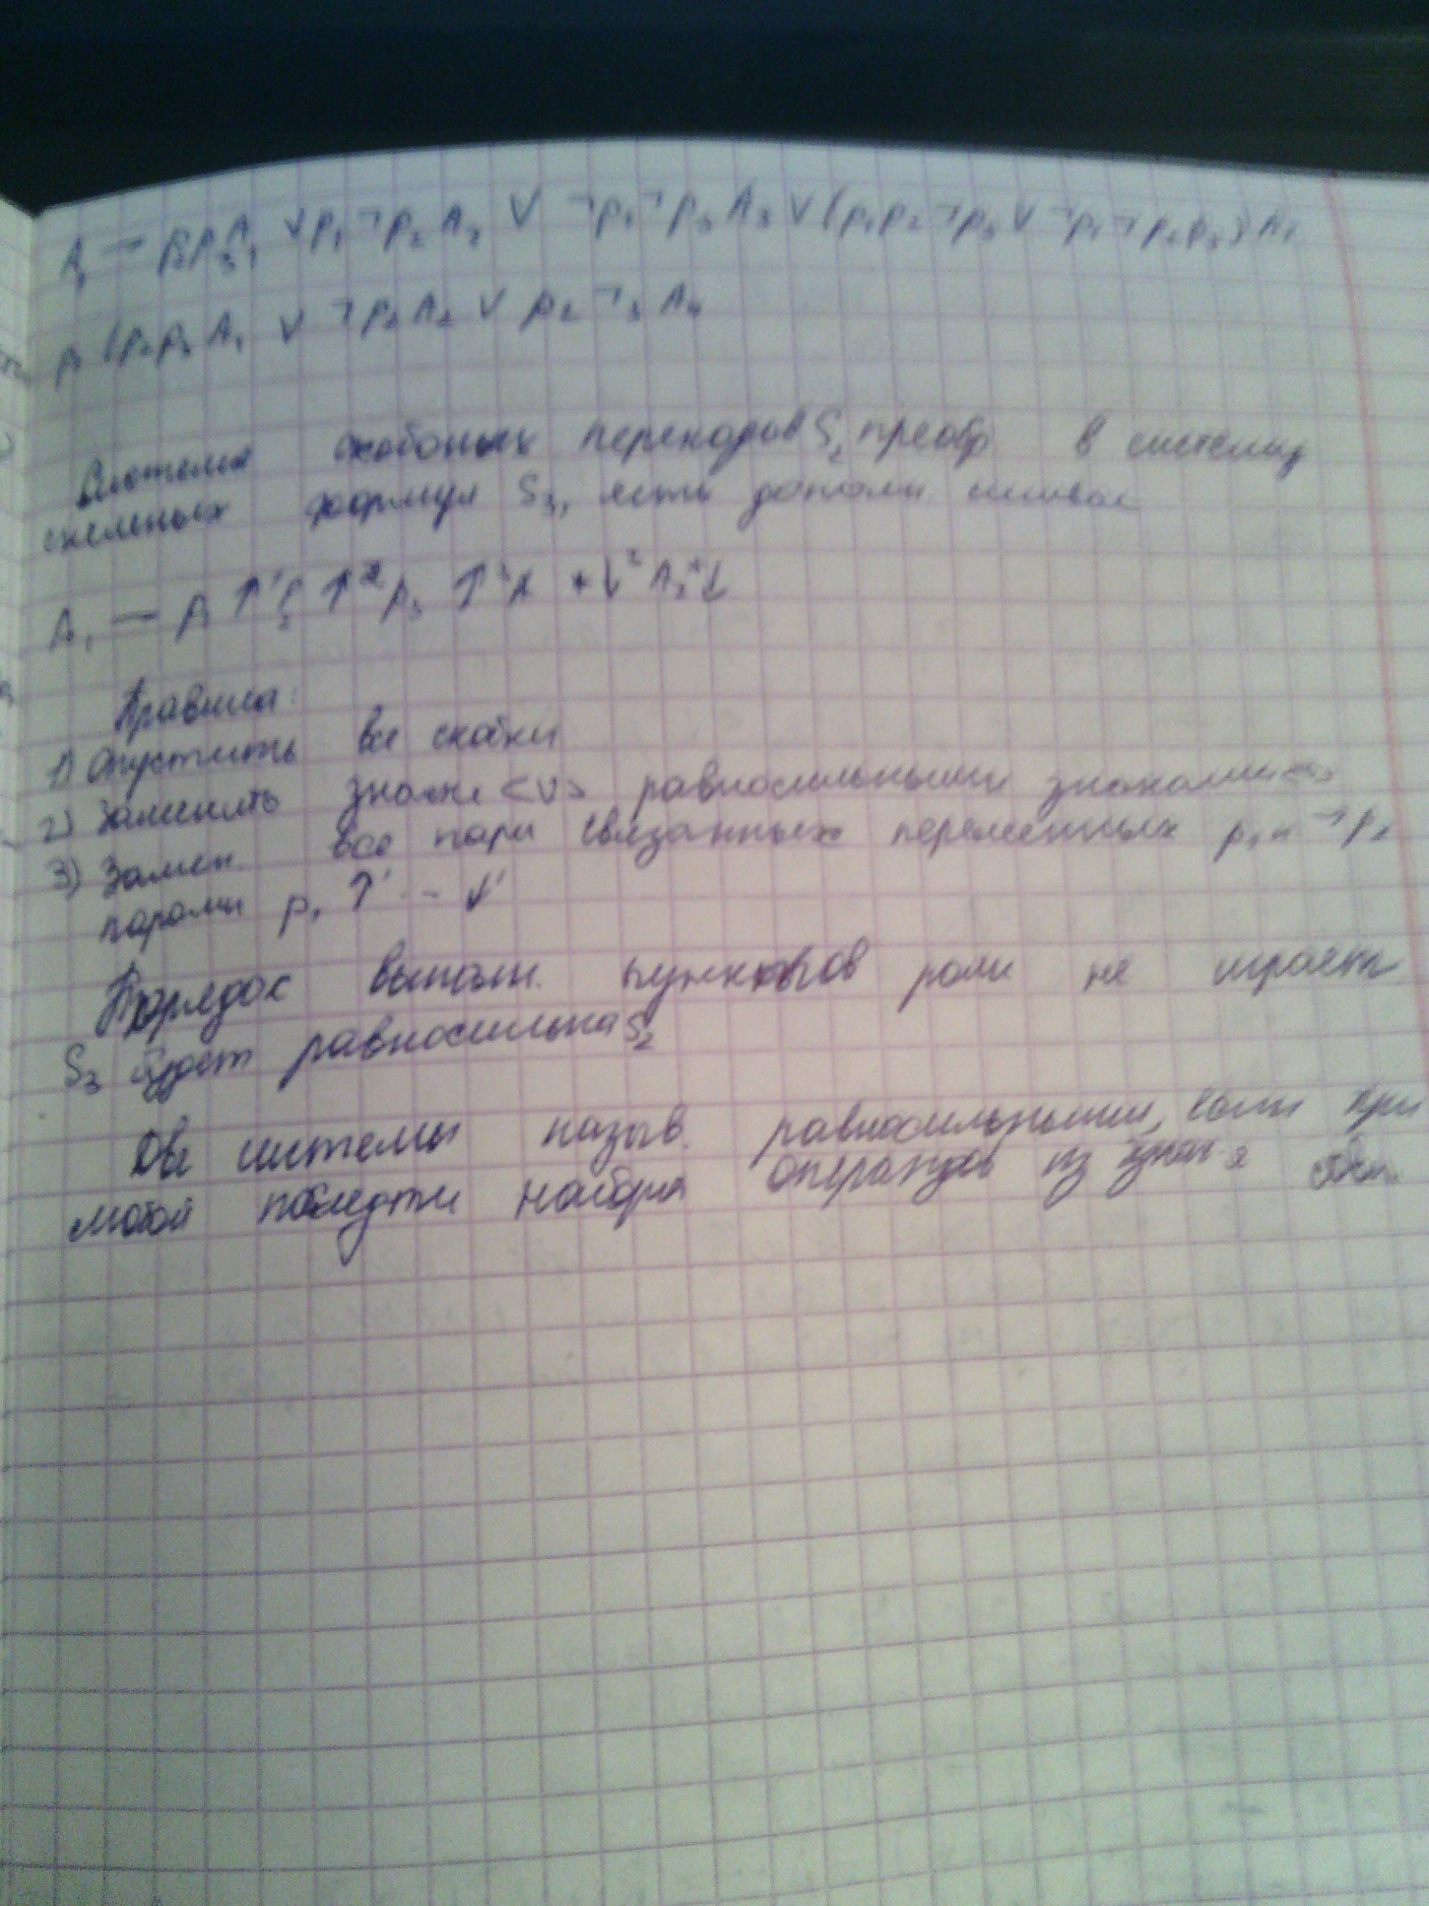 A₁ — p₂p₃A₁ ∨ p₁¬p₂A₂ ∨ ¬p₁¬p₃A₃ ∨ (p₁p₂¬p₃ ∨ ¬p₁¬p₂p₃)A₄
p₁(p₂p₃A₁ ∨ ¬p₂A₂ ∨ p₂¬₃A₄
Система скобочных переходов S₂ преобр в систему
схемных формул S₃,
A₁ — p₁ ↑¹ p₂ ↑² p₃ ↑³
Правила:
1) Опустить все скобки
2) Заменить знаки <∨> равносильными знаками
3) Замен. все пары связанных переменных p₁ и ¬p₂
парами p₁ ↑¹ - ↓¹
Порядок выполн. пунктов роли не играет
S₃ будет равносильна S₂
Две системы назыв. равносильными, если при
любой последти набора операндов из